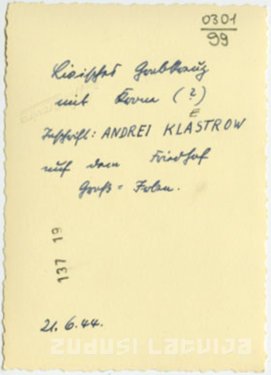 0301
99
Livisches Grabkreuz
mit Krone (?)
E
Inschrift: ANDREI KLASTROW
auf dem Friedhof
Groß-Irben.
137 19
21.6.44.
ZUDUSI LATVIJA